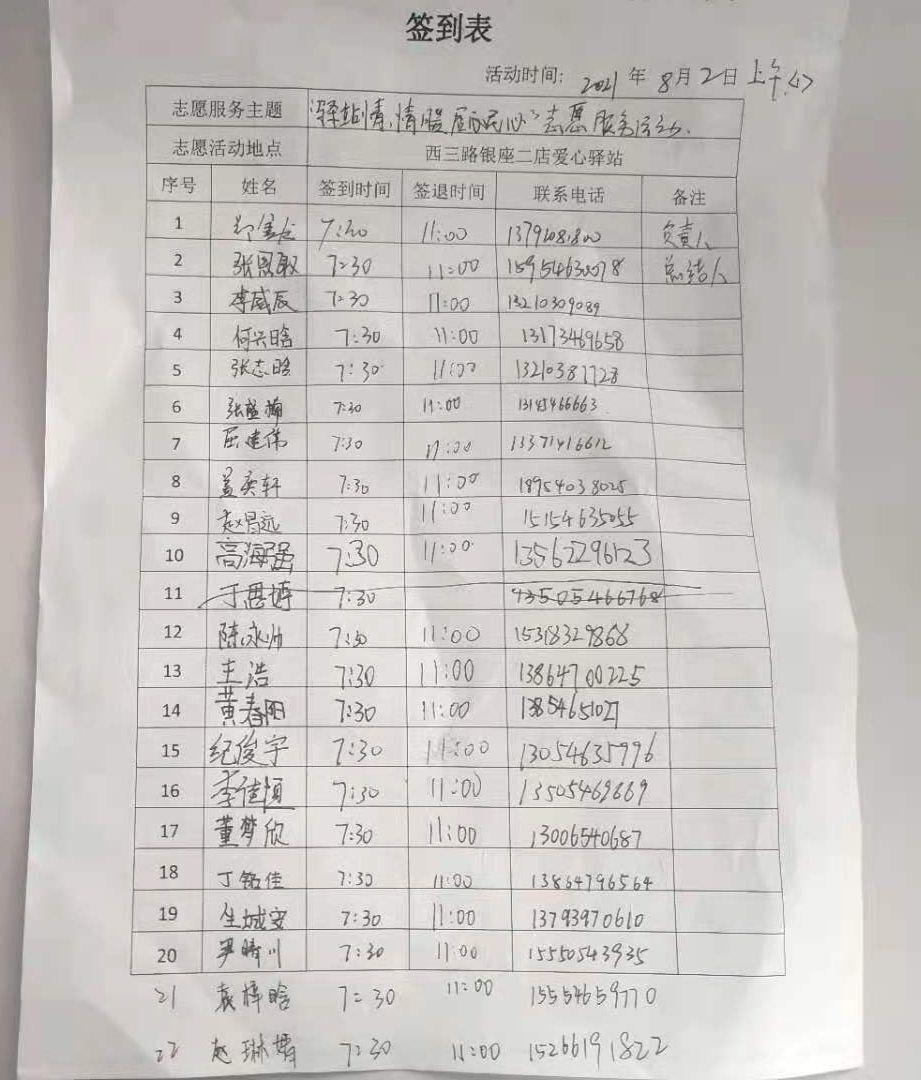 签到表
活动时间: 2021 年 8月2日 上午
志愿服务主题 志愿服务活动.
志愿活动地点 西三路银座二店爱心驿站
序号 姓名 签到时间 签退时间 联系电话 备注
1 11:00 负责人
2 7:30 11:00 15954630078 总结人
3 李威辰 7:30 11:00 13210309089
4 何兴晗 7:30 11:00 13173469658
5 张志晗 7:30 11:00 13210387728
6 张盛楠 7:30 11:00 13145466663
7 屈建伟 7:30 11:00 13371416612
8 孟奕轩 7:30 11:00 18954038025
9 赵昌远 7:30 11:00 15154635055
10 高海强 7:30 11:00 13562296123
11 7:30 13505466768
12 陈永帅 7:30 11:00 15318329868
13 王浩 7:30 11:00 13864700225
14 黄春阳 7:30 11:00 13854651027
15 纪俊宇 7:30 11:00 13054635996
16 李佳恒 7:30 11:00 13505469669
17 董梦欣 7:30 11:00 13006540687
18 丁铭佳 7:30 11:00 13864796564
19 7:30 11:00 13793970610
20 7:30 11:00 15550543935
21 袁梓晗 7:30 11:00 15554659770
22 赵琳 7:30 11:00 15266191822